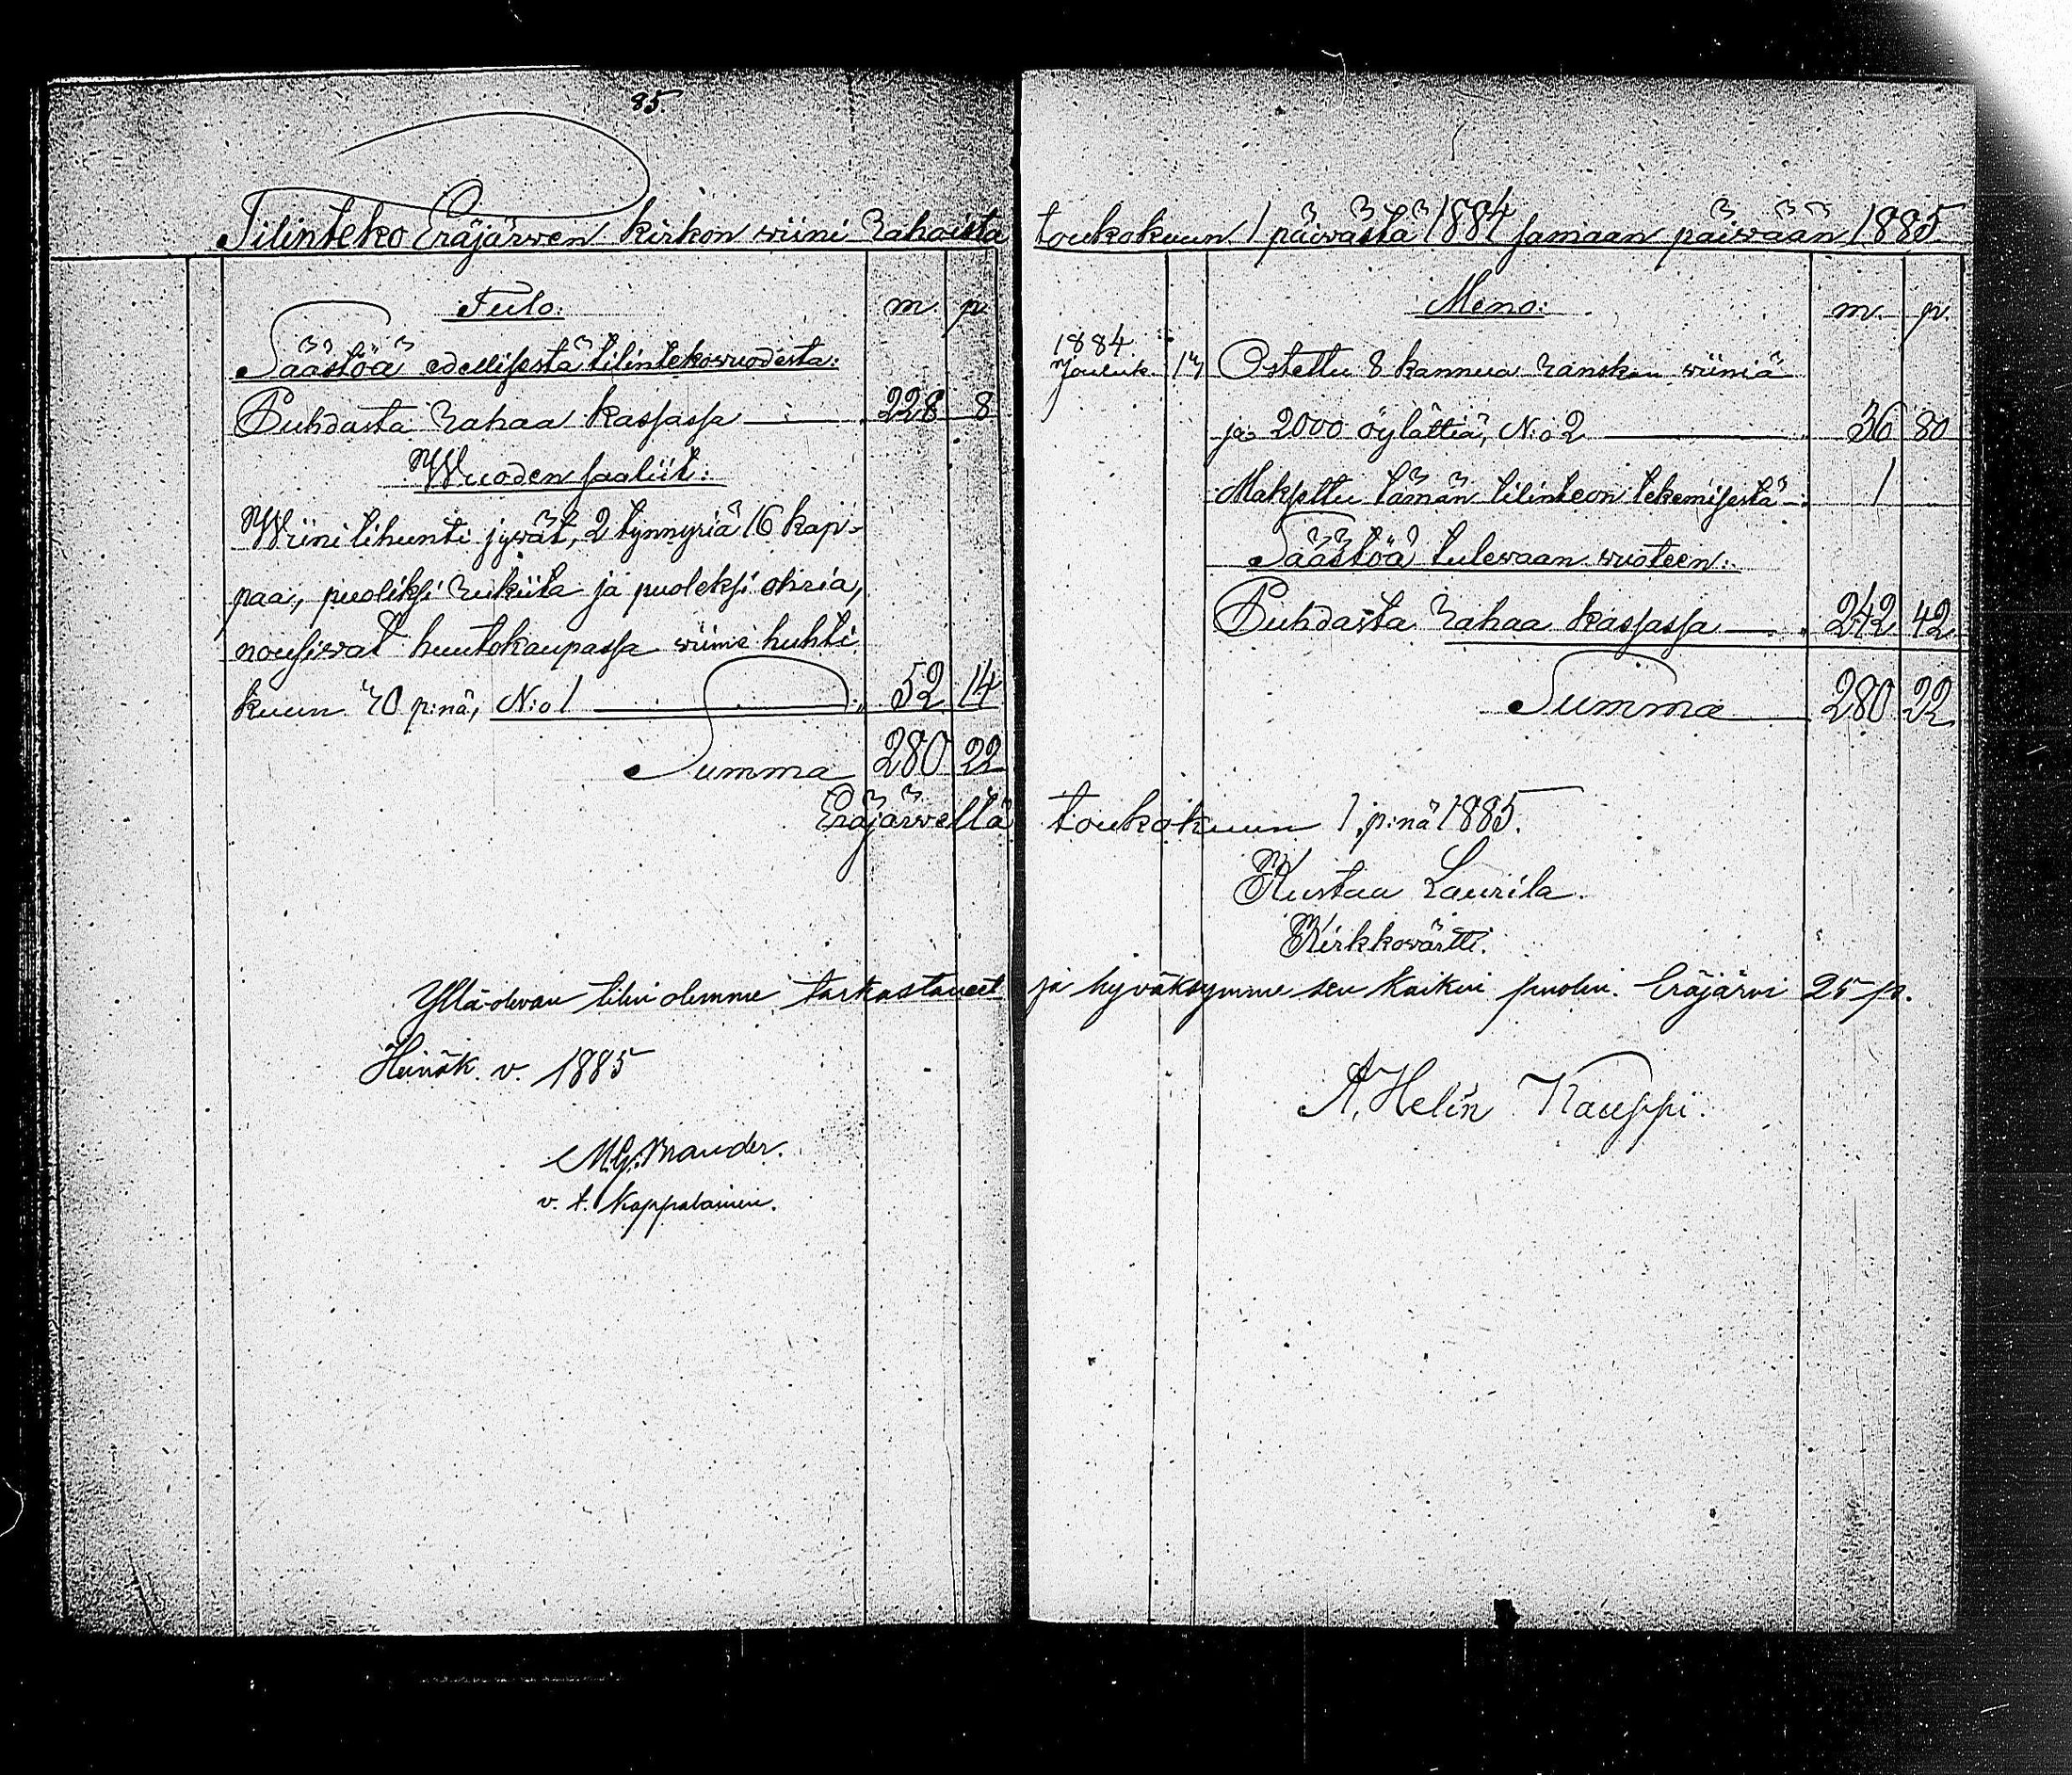 85.
Tilinteko Eräjärwen kirkon wiini-rahoista
Tulo: m. p.
Säästöä edellisestä tilintekowuodesta:
Puhdasta rahaa kassassa — 228 8
Wuoden saaliit:
Wiinitihunti jywät, 2 tynnyriä 16 kap-
paa, puoliksi rukiita ja puoleksi ohria,
nousiwat huutokaupassa wiime huhti
kuun 30 p:nä, N:o 1 — 52 14
Summa 280 22
toukokuun 1 päiwästä 1884 samaan päiwään 1885.
Meno: m. p.
1884
Jouluk. 13 Ostettu 8 kannua ranskan wiiniä
ja 2000 öylättiä, N:o 2 — 36 80
Maksettu tämän tilinteon tekemisestä — 1
Säästöä tulewaan wuoteen:
Puhdasta rahaa kassassa — 242 42
Summa 280 22
Eräjärwellä toukokuun 1 p:nä 1885.
Kustaa Laurila.
Kirkkowärtti.
Ylläolevan tilin olemme tarkastaneet ja hyväksymme sen kaikin puolin. Eräjärvi 25 p.
Heinäk. v. 1885
M.G. Brander.
v. t. Kappalainen.
A. Helin Kauppi.